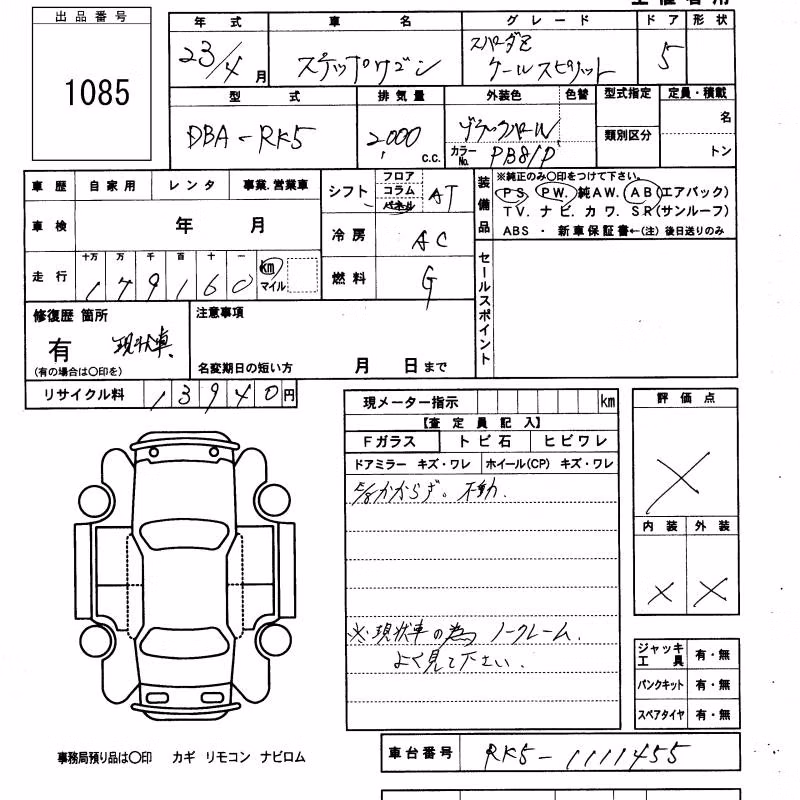 出品番号
1085
年式 車名 グレード ドア 形状
23/4月 ステップワゴン スパーダZ クールスピリット 5
型式 排気量 外装色 色替 型式指定 定員・積載
DBA-RK5 2,000 c.c. ブラックパール 類別区分 名
カラーNo. PB81P トン
車歴 自家用 レンタ 事業.営業車
シフト フロア コラム パネル AT
装備品 ※純正のみ〇印をつけて下さい。
PS. PW. 純AW. AB(エアバック)
TV. ナビ. カワ. SR(サンルーフ)
ABS ・ 新車保証書←(注) 後日送りのみ
車検 年 月
冷房 AC
走行 十万 万 千 百 十 一
179160 km マイル
燃料 G
セールスポイント
修復歴 箇所
有 現状車
(有の場合は〇印を)
注意事項
名変期日の短い方 月 日まで
リサイクル料 13940円
現メーター指示 km
【査定員記入】
Fガラス トビ石 ヒビワレ
ドアミラー キズ・ワレ ホイール(CP) キズ・ワレ
E/gかからず。不動.
※現状車の為 ノークレーム.
よく見て下さい.
評価点
×
内装 外装
× ×
ジャッキ工具 有・無
パンクキット 有・無
スペアタイヤ 有・無
事務局預り品は〇印 カギ リモコン ナビロム
車台番号 RK5-1111455